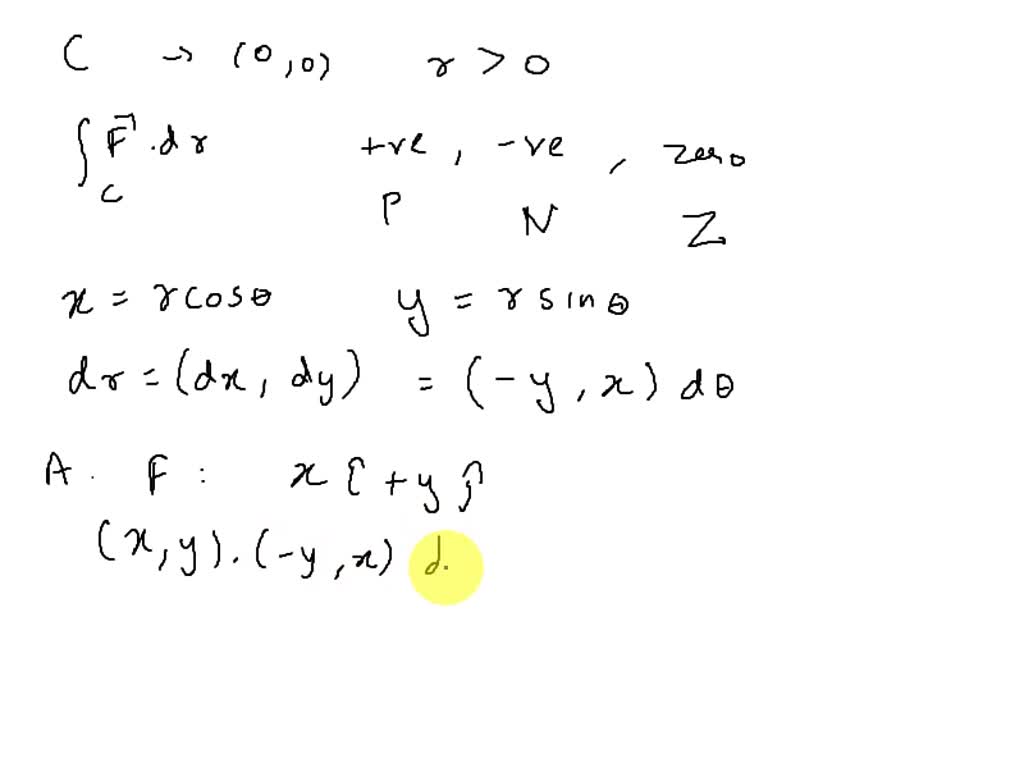 C → (0,0) r > 0
∫_C F⃗ . dr +ve, -ve, zero
P N Z
x = r cos θ y = r sin θ
dr = (dx, dy) = (-y, x) dθ
A. F : x î + y ĵ
(x, y) . (-y, x) d